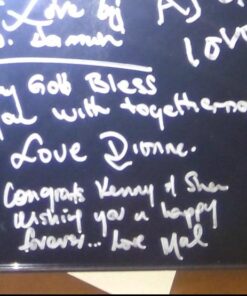 Love by
Damon
AJ
Love
God Bless
you with togetherne
Love Dionne.
Congrats Kenny & Shar
Wishing you a happy
forever... Love Mal